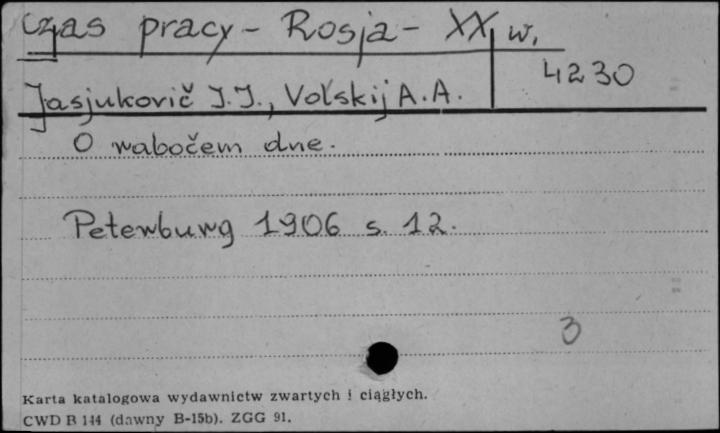 Czas pracy - Rosja - XX w.
4230
Jasjukovič J.J., Vol'skij A.A.
O rabočem dne.
Peterburg 1906 s. 12.
3
Karta katalogowa wydawnictw zwartych i ciągłych.
CWD B 144 (dawny B-15b). ZGG 91.